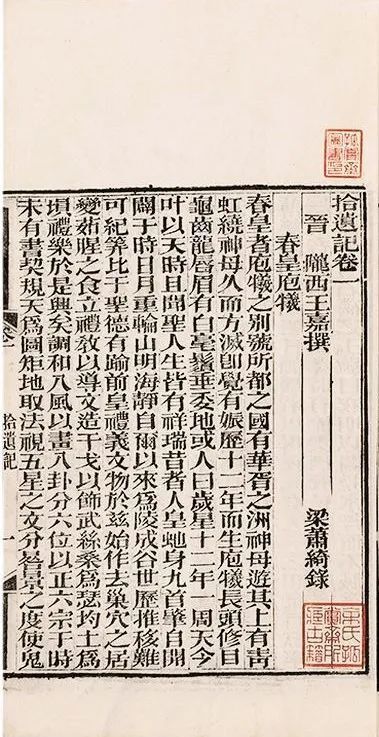 拾遺記卷一
晉 隴西王嘉撰 梁蕭綺錄
春皇庖犧
春皇者庖犧之別號所都之國有華胥之洲神母遊其上有青
虹繞神母久而方滅卽覺有娠歷十二年而生庖犧長頭修目
龜齒龍唇眉有白毫鬚垂委地或人曰歲星十二年一周天今
叶以天時且聞聖人生皆有祥瑞昔者人皇蛇身九首肇自開
闢于時日月重輪山明海靜自爾以來爲陵成谷世歷推移難
可紀筭比于聖德有踰前皇禮義文物於茲始作去巢穴之居
變茹腥之食立禮敎以導文造干戈以飾武絲桑爲瑟均土爲
塤禮樂於是興矣調和八風以畫八卦分六位以正六宗于時
未有書契規天爲圖矩地取法視五星之文分晷景之度使鬼
拾遺記 一